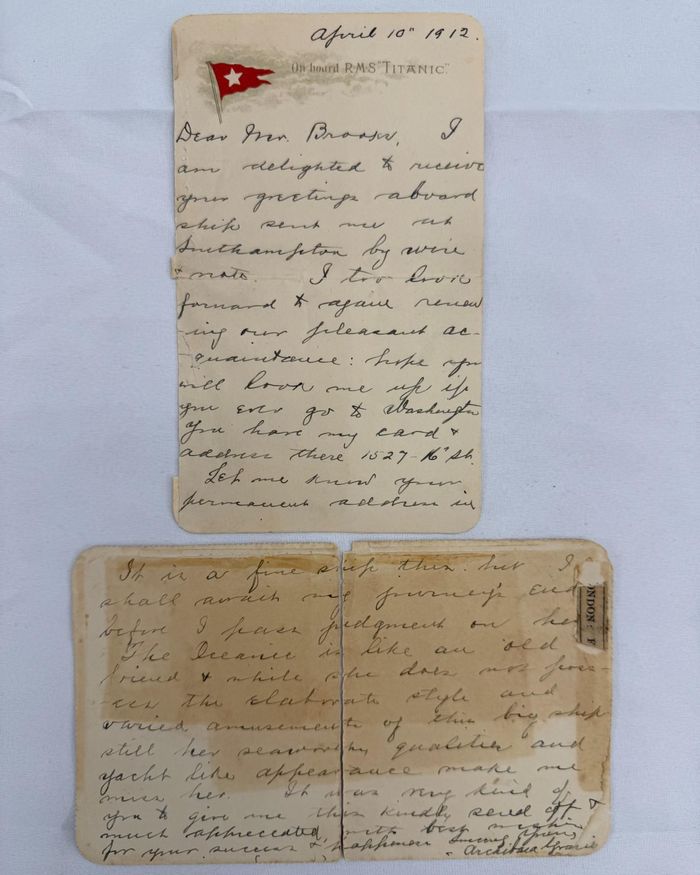 April 10" 1912.
On board R.M.S "TITANIC".
Dear Mr. Brooks, I
am delighted to receive
your greetings aboard
ship sent me at
Southampton by wire
& note. I too look
forward to again renew
-ing our pleasant ac-
-quaintance: hope you
will look me up if
you ever go to Washington
You have my card &
address there 1527-16" St.
Let me know your
permanent address in
It is a fine ship this. but I
shall await my journey's end
before I pass judgment on her
The Oceanic is like an old
friend & while she does not poss-
-ess the elaborate style and
varied amusements of this big ship
still her seaworthy qualities and
yacht like appearance make me
miss her. It was very kind of
you to give me this kindly send off &
much appreciated, with best wishes
for your success & happiness Sincerely yours
Archibald Gracie
ONDON : F